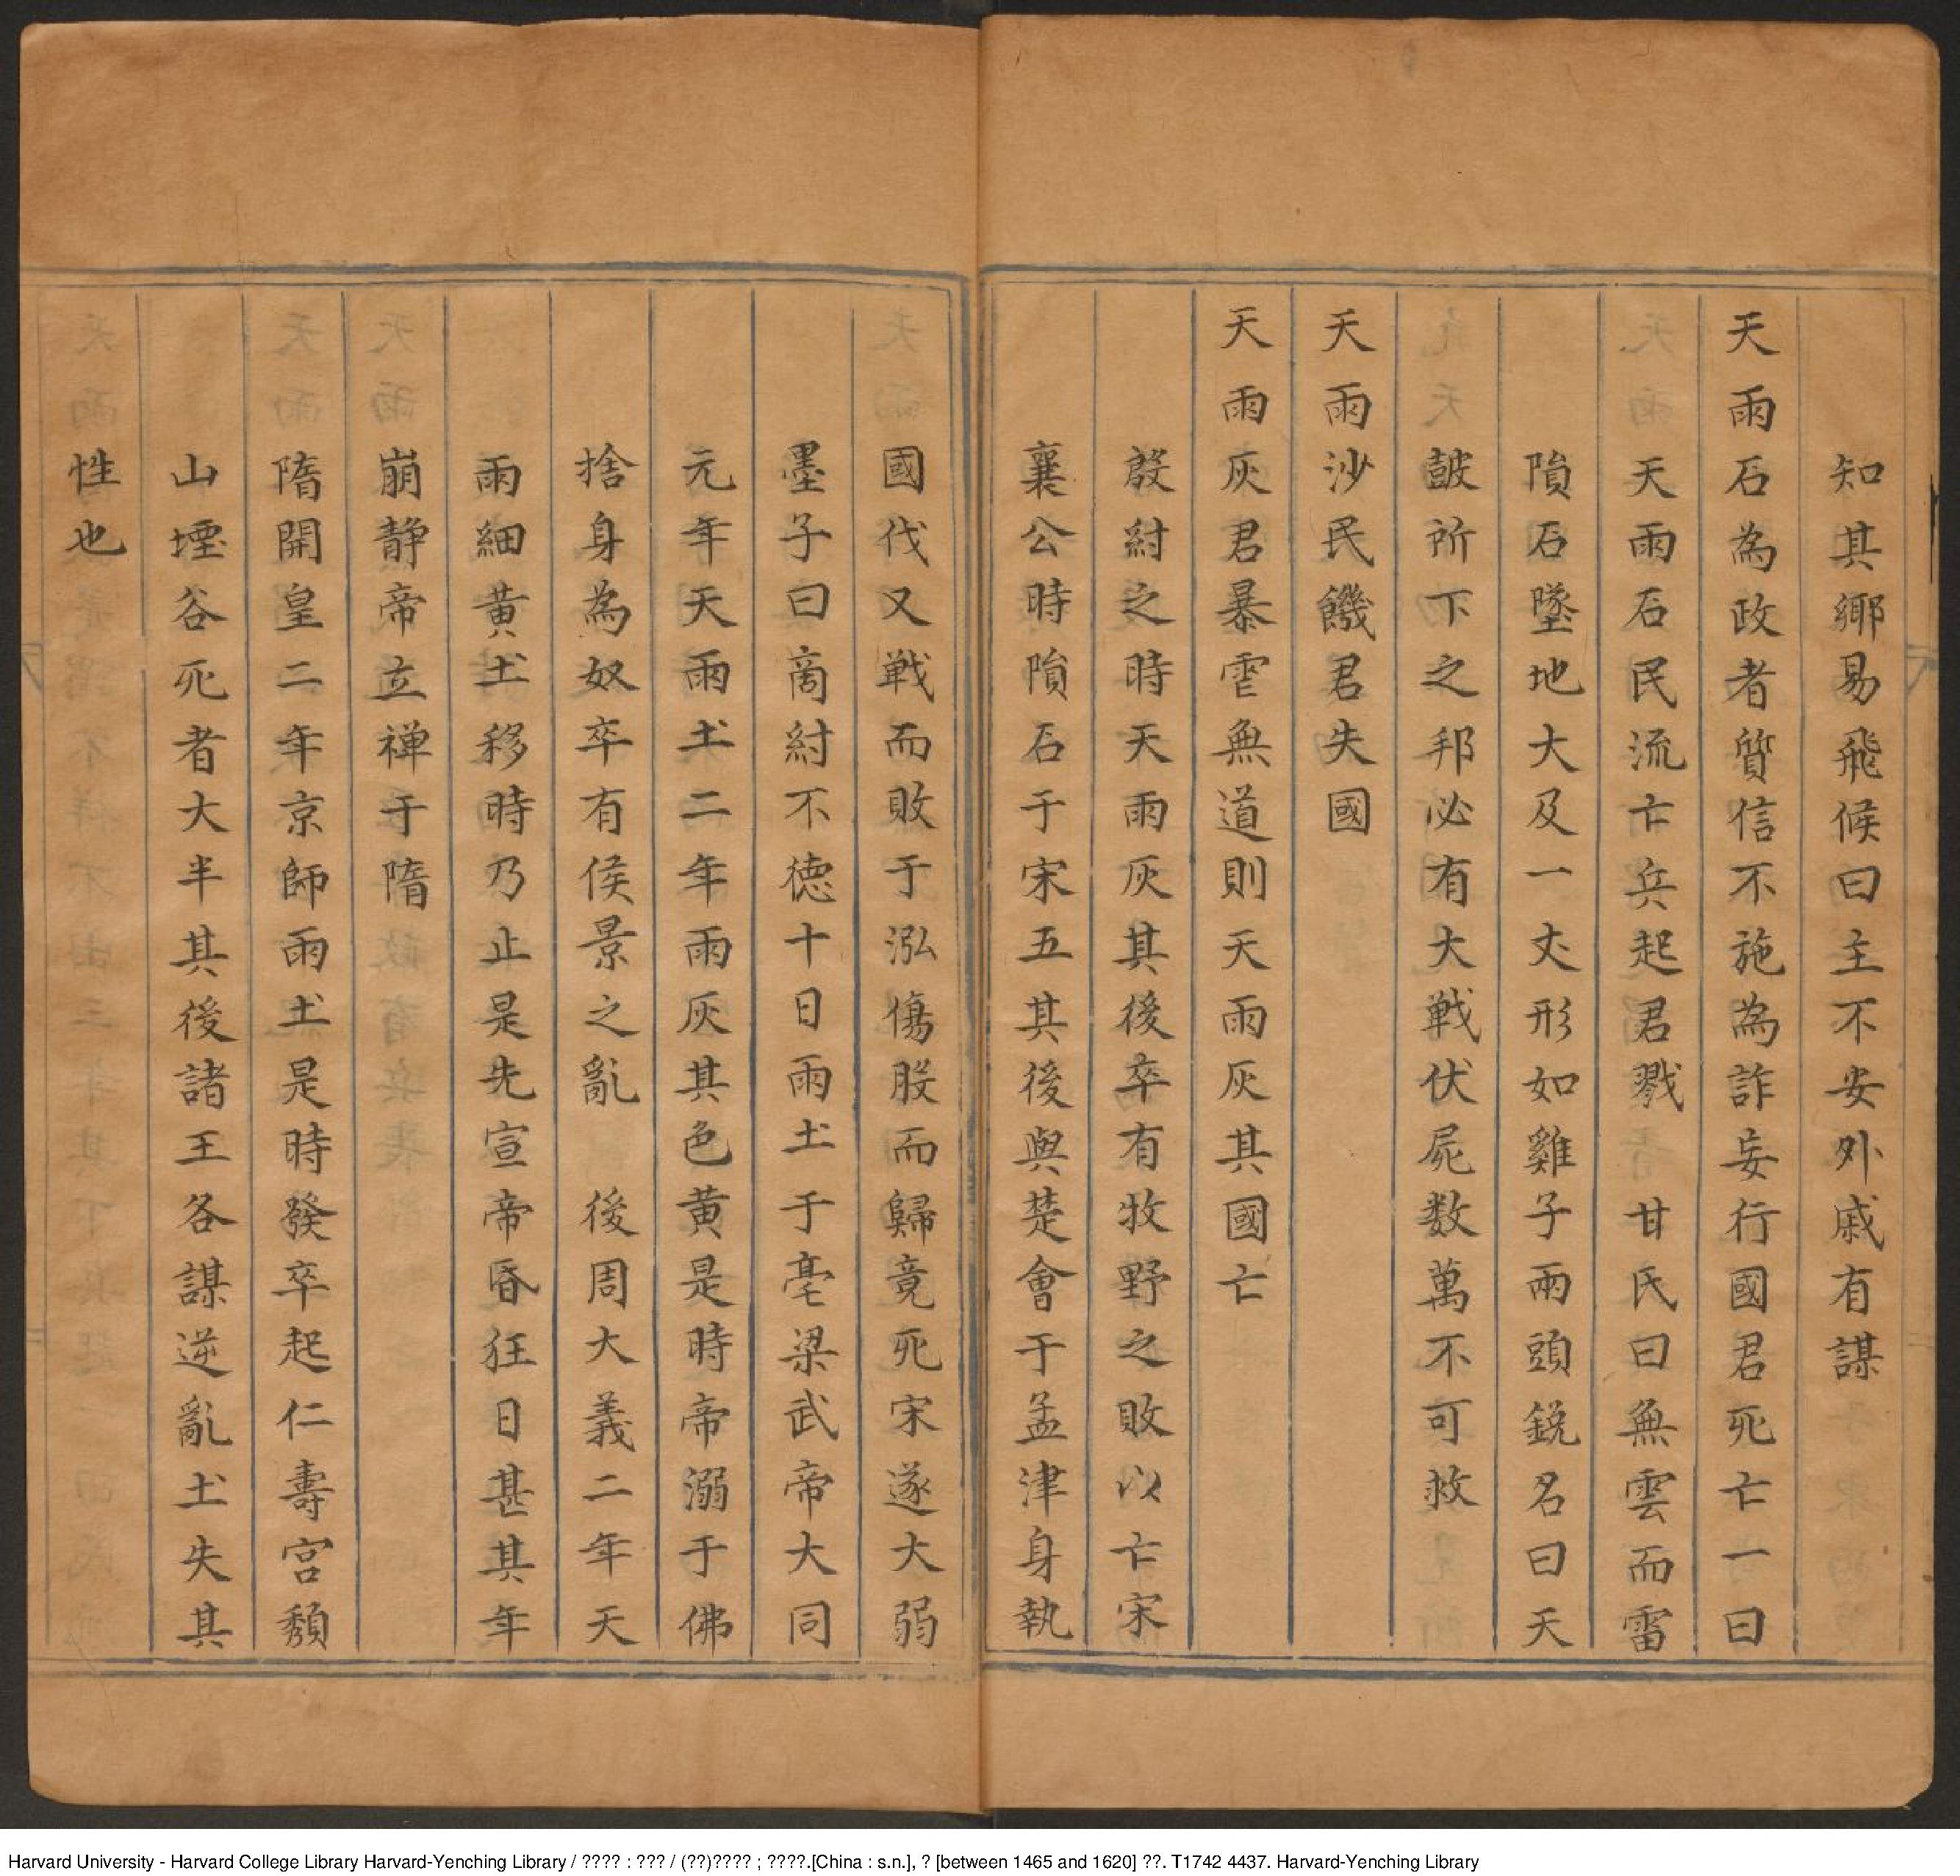 知其鄊易飛候曰主不安外戚有謀
天雨石為政者質信不施為詐妄行國君死亡一曰
天雨石民流亡兵起君戮　甘氏曰無雲而雷
隕石墜地大及一丈形如雞子兩頭銳名曰天
皷所下之邦必有大戰伏屍数萬不可救
天雨沙民饑君失國
天雨灰君暴雪無道則天雨灰其國亡
殷紂之時天雨灰其後卒有牧野之敗以亡宋
襄公時隕石于宋五其後與楚會于孟津身執
國伐又戰而敗于泓傷股而歸竟死宋遂大弱
墨子曰商紂不德十日雨土于亳梁武帝大同
元年天雨土二年雨灰其色黄是時帝溺于佛
捨身為奴卒有侯景之亂　後周大義二年天
雨細黄土移時乃止是先宣帝昏狂日甚其年
崩静帝立禅于隋
隋開皇二年京師雨土是時發卒起仁壽宮頽
山堙谷死者大半其後諸王各謀逆亂土失其
性也
Harvard University - Harvard College Library Harvard-Yenching Library / ???? : ??? / (??)???? ; ????.[China : s.n.], ? [between 1465 and 1620] ??. T1742 4437. Harvard-Yenching Library